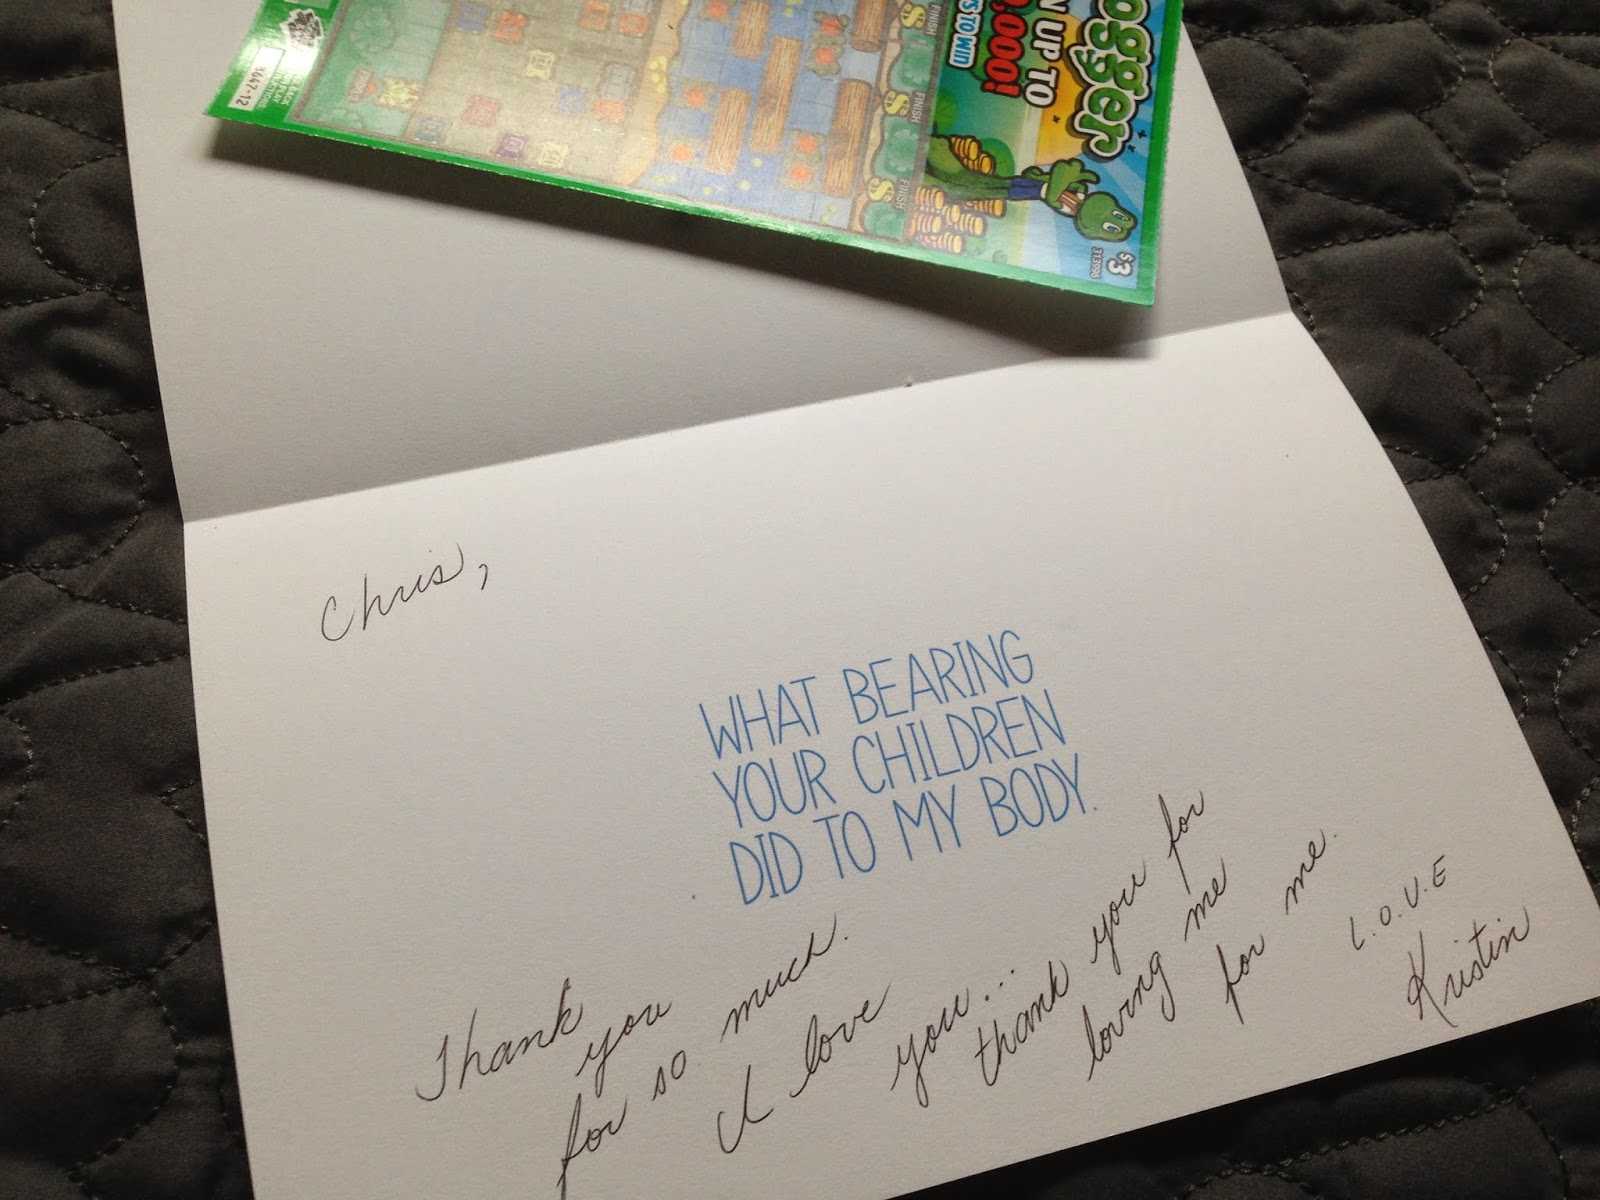 Frogger
WIN UP TO
0,000!
S TO WIN
$3
313996
FINISH
FINISH
FINISH
BACK
PLAY
3647-12
Chris,
WHAT BEARING
YOUR CHILDREN
DID TO MY BODY.
Thank
you
for so much.
I love
you... thank you for
loving me
for me.
L.O.V.E
Kristin